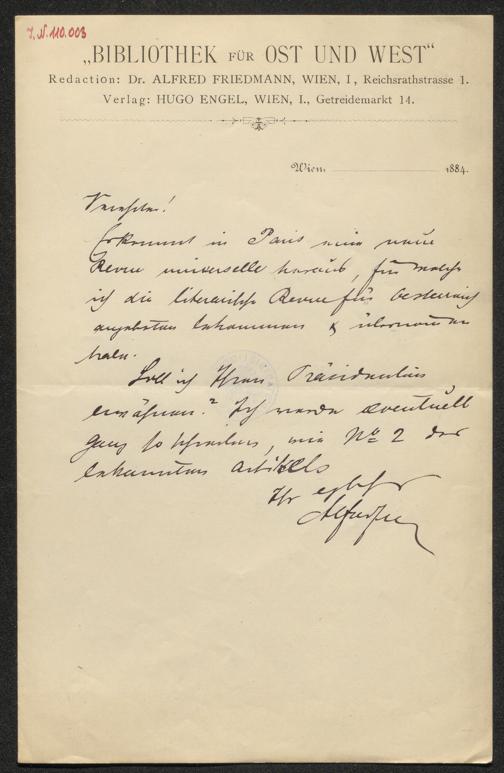 I.N. 110.003
„BIBLIOTHEK FÜR OST UND WEST“
Redaction: Dr. ALFRED FRIEDMANN, WIEN, I, Reichsrathstrasse 1.
Verlag: HUGO ENGEL, WIEN, I., Getreidemarkt 14.
Wien, 1884.
Verehrter!
Es kommt in Paris eine neue
Revue universelle heraus, für welche
ich die literarische Revue für Oesterreich
angeboten bekommen & übernommen
habe.
Soll ich Ihren Präsidenten
erwähnen? Ich werde eventuell
ganz so schreiben, wie No 2 des
bekannten Artikels
Ihr